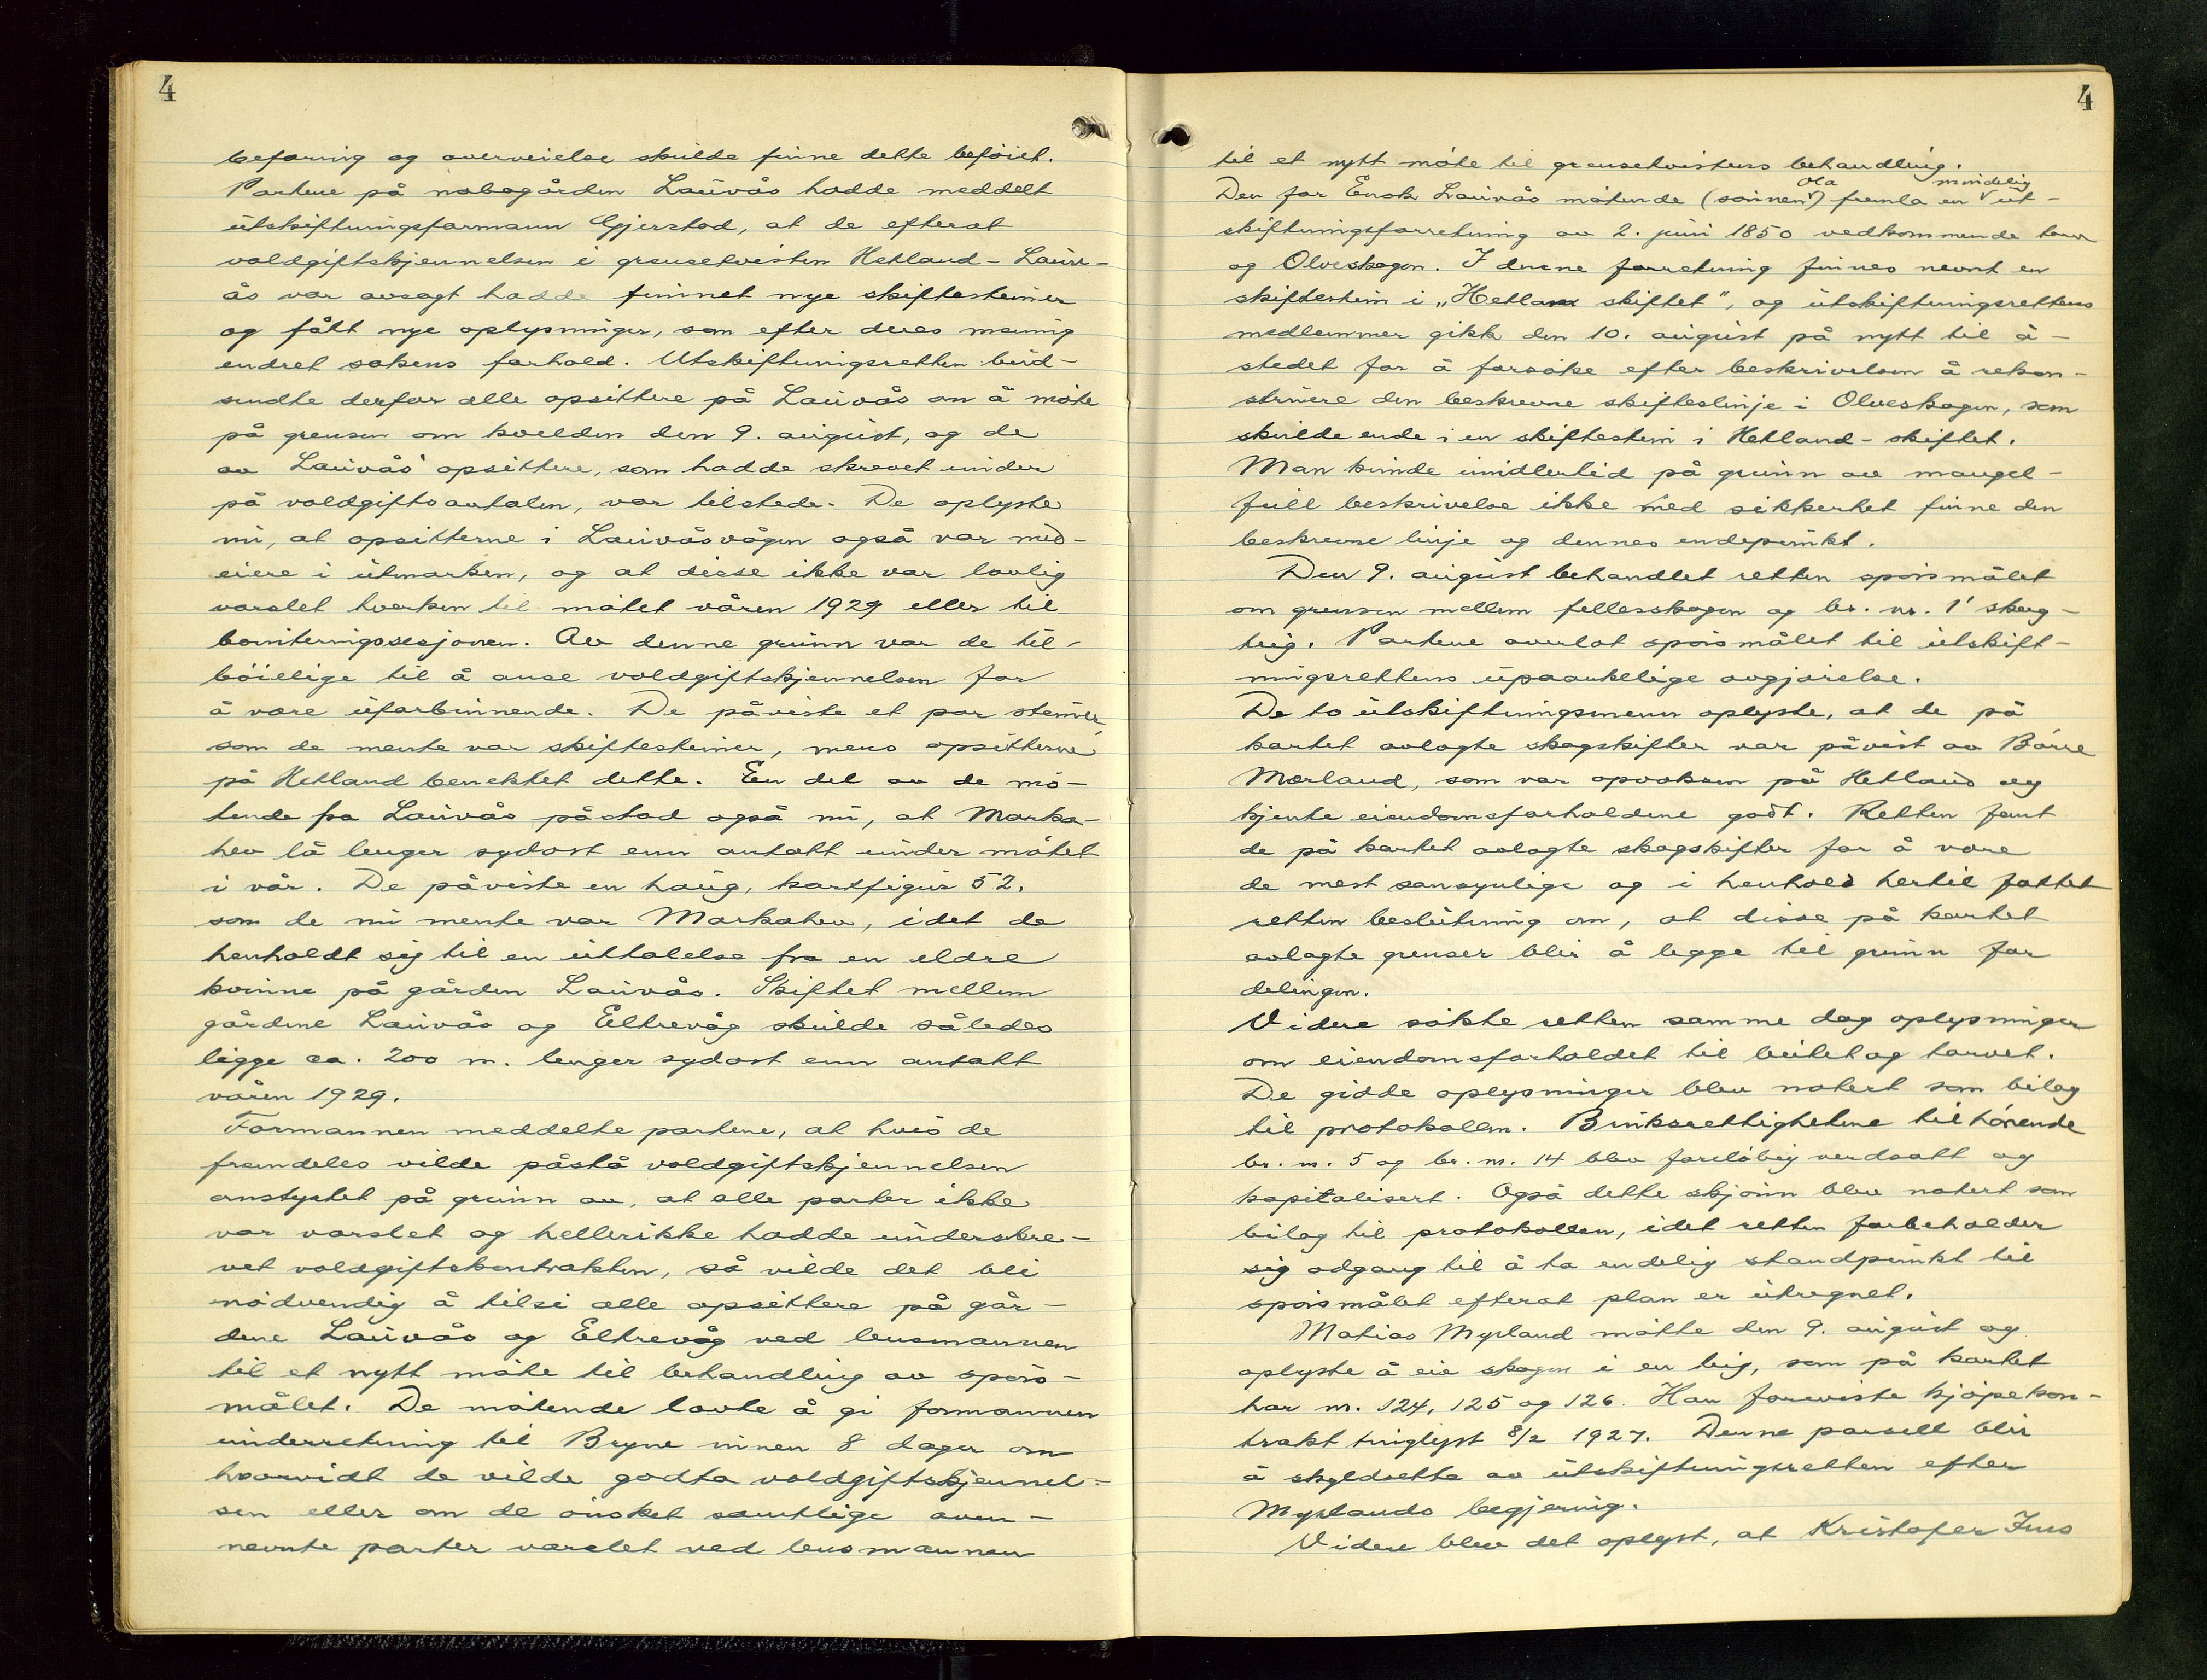 4
befaring og overveielse skulde finne dette beføiet.
Partene på nabogården Lauvås hadde meddelt
utskiftningsformann Gjerstad, at de efterat
voldgiftskjennelsen i grensetvisten Hetland - Lauv-
ås var avsagt hadde funnet nye skiftesteiner
og fått nye oplysninger, som efter deres mening
endret sakens forhold. Utskiftningsretten bud-
sendte derfor alle opsittere på Lauvås om å møte
på grensen om kvelden den 9. august, og de
av Lauvås' opsittere, som hadde skrevet under
på voldgiftsavtalen, var tilstede. De oplyste
nu, at opsitterne i Lauvåsvågen også var med-
eiere i utmarken, og at disse ikke var lovlig
varslet hverken til møtet våren 1929 eller til
boniteringssesjonen. Av denne grunn var de til-
bøielige til å anse voldgiftskjennelsen for
å være uforbinnende. De påviste et par steiner,
som de mente var skiftesteiner, mens opsitterne
på Hetland benektet dette. En del av de mø-
tende fra Lauvås påstod også nu, at Marka-
hev lå lenger sydost enn antatt under møtet
i vår. De påviste en haug, kartfigur 52,
som de nu mente var Markahev, idet de
henholdt sig til en uttalelse fra en eldre
kvinne på gården Lauvås. Skiftet mellem
gårdene Lauvås og Eltrevåg skulde således
ligge ca. 200 m. lenger sydost enn antatt
våren 1929.
Formannen meddelte partene, at hvis de
fremdeles vilde påstå voldgiftskjennelsen
omstøtet på grunn av, at alle parter ikke
var varslet og hellerikke hadde underskre-
vet voldgiftskontrakten, så vilde det bli
nødvendig å tilsi alle opsittere på går-
dene Lauvås og Eltrevåg ved lensmannen
til et nytt møte til behandling av spørs-
målet. De møtende lovte å gi formannen
underretning til Bryne innen 8 dager om
hvorvidt de vilde godta voldgiftskjennel-
sen eller om de ønsket samtlige oven-
nevnte parter varslet ved lensmannen
4
til et nytt møte til grensetvistens behandling.
Den for Enok Lauvås møtende (sønnen Ola) fremla en mindelig ut-
skiftningsforretning av 2. juni 1850 vedkommende
og Olveskogen. I denne forretning finnes nevnt en
skiftestein i „Hetland skiftet", og utskiftningsrettens
medlemmer gikk den 10. august på nytt til å-
stedet for å forsøke efter beskrivelsen å rekon-
struere den beskrevne skifteslinje i Olveskogen, som
skulde ende i en skiftestein i Hetland-skiftet.
Man kunde imidlertid på grunn av mangel-
full beskrivelse ikke med sikkerhet finne den
beskrevne linje og dennes endepunkt.
Den 9. august behandlet retten spørsmålet
om grensen mellem fellesskogen og br. nr. 1' skog-
teig. Partene overlot spørsmålet til utskift-
ningsrettens upaankelige avgjørelse.
De to utskiftningsmenn oplyste, at de på
kartet avlagte skogskifter var påvist av Børre
Mærland, som var opvoksen på Hetland og
kjente eiendomsforholdene godt. Retten fant
de på kartet avlagte skogskifter for å være
de mest sansynlige og i henhold hertil fattet
retten beslutning om, at disse på kartet
avlagte grenser blir å legge til grunn for
delingen.
Videre søkte retten samme dag oplysninger
om eiendomsforholdet til beitet og torvet.
De gidde oplysninger blev notert som bilag
til protokollen. Bruksrettighetene tilhørende
br. nr. 5 og br. nr. 14 blev foreløbig verdsatt og
kapitalisert. Også dette skjønn blev notert som
bilag til protokollen, idet retten forbeholder
sig adgang til å ta endelig standpunkt til
spørsmålet efterat plan er utregnet.
Matias Myrland møtte den 9. august og
oplyste å eie skogen i en teig, som på kartet
har nr. 124, 125 og 126. Han foreviste kjøpekon-
trakt tinglyst 8/2 1927. Denne parsell blir
å skyldsette av utskiftningsretten efter
Myrlands begjering.
Videre blev det oplyst, at Kristofer Jens